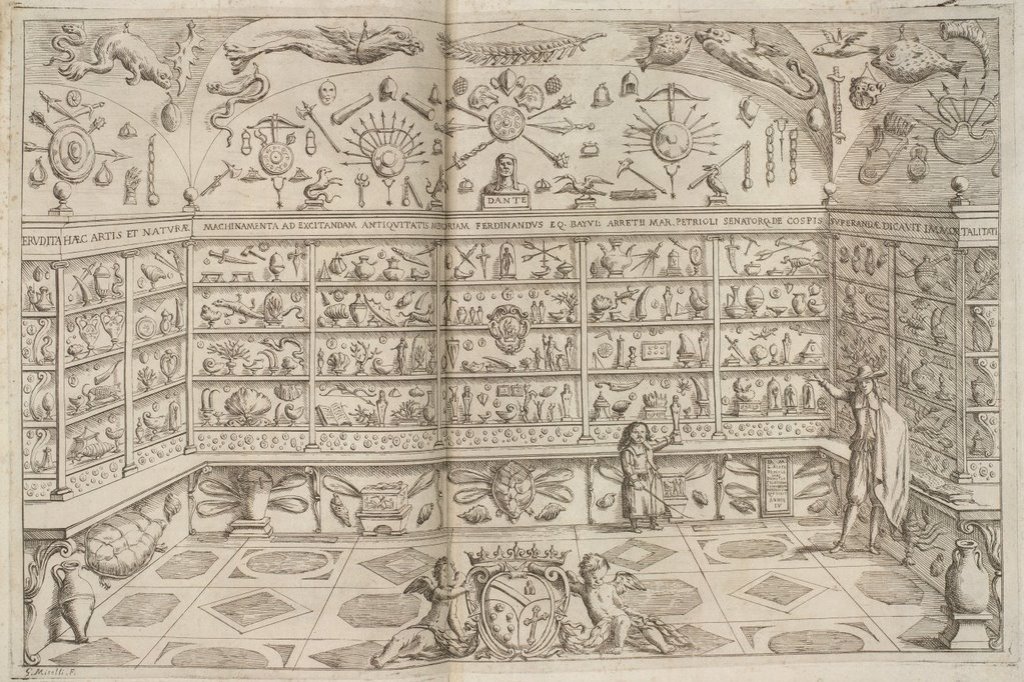 DANTE
ERVDITA HÆC ARTIS ET NATVRÆ MACHINAMENTA AD EXCITANDAM ANTIQVITATIS MEMORIAM FERDINANDVS EQ. BAYVI: ARRETII MAR. PETRIOLI SENATORQ DE COSPIS SVPERANDÆ DICAVIT IMMORTALITATI
G. Mitelli. F.